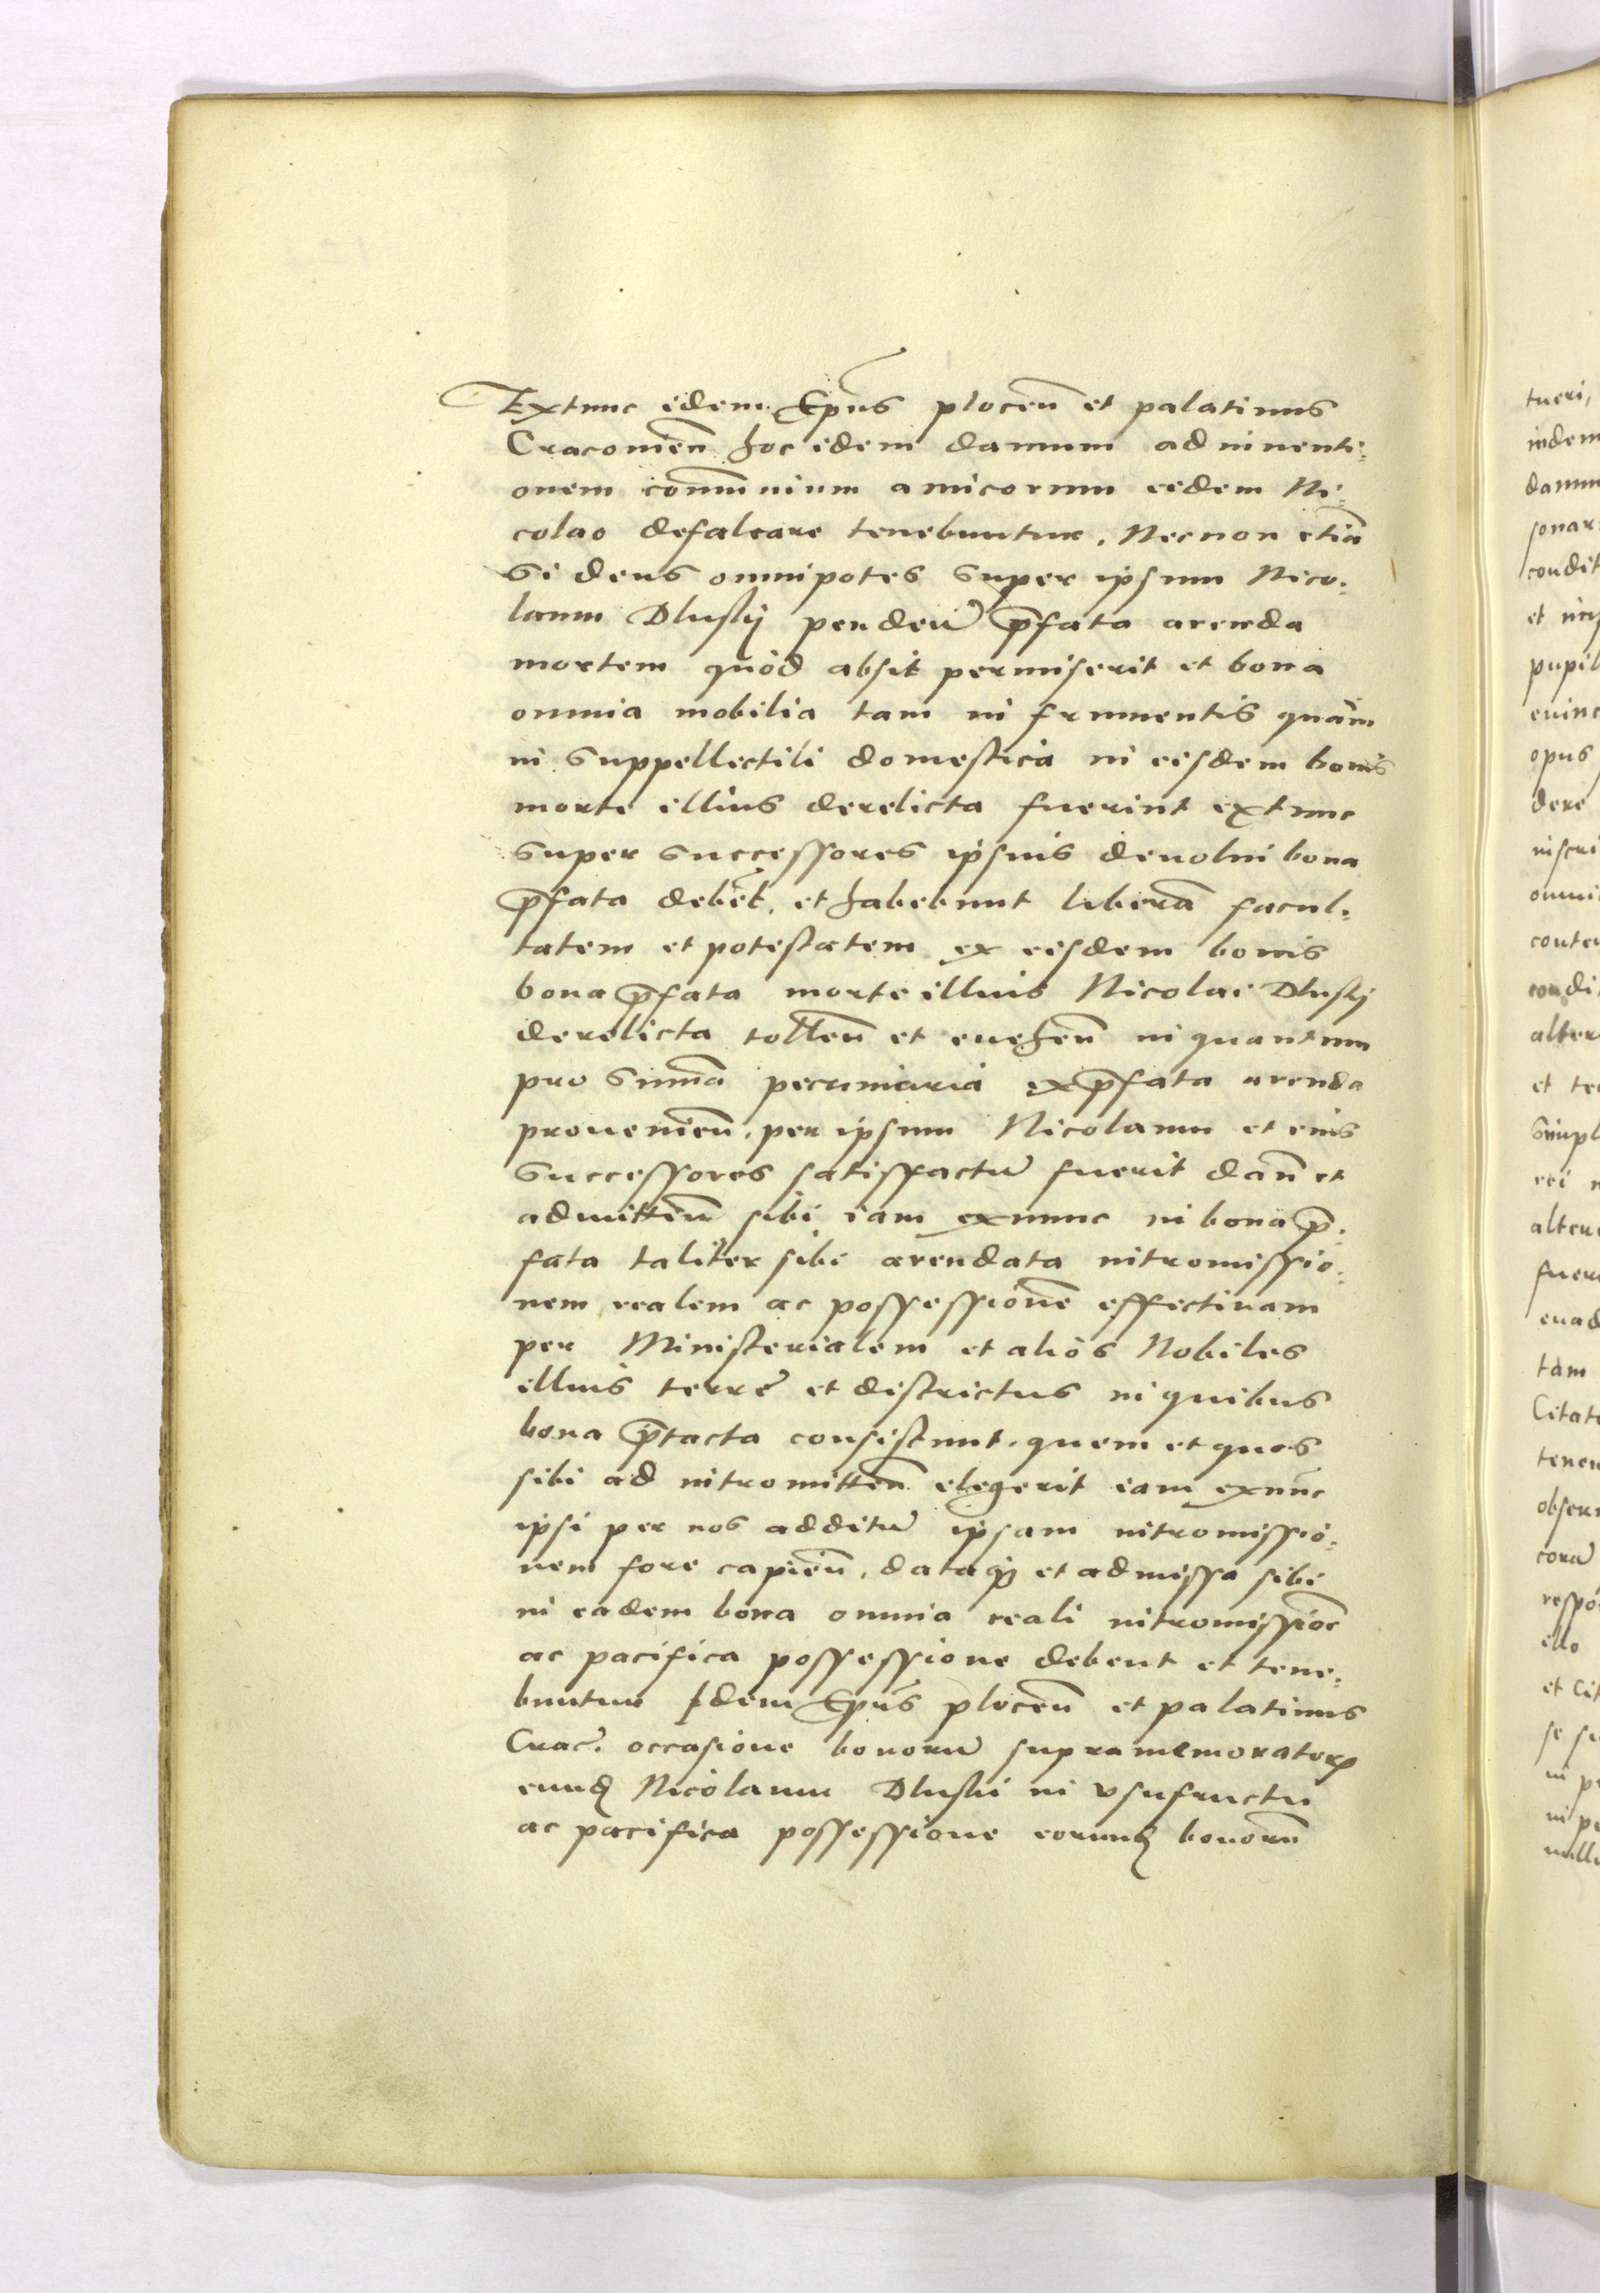 Extunc idem Ep̃us plocen̄ et palatinus
Cracouien̄ hoc idem damnum ad inuenti-
onem com̄unium amicorum eidem Ni-
colao defalcare tenebuntur. Nec non etiā
si deus omnipotēs super ipsum Nico-
laum Dluskij penden̄ p̄fata arenda
mortem quòd absit permiserit et bona
omnia mobilia tam in frumentis quàm
in suppellectili domestica in eisdem bonis
morte illius derelicta fuerint extunc
super successores ipsius deuolui bona
p̄fata debēt. et habebunt liberā facul-
tatem et potestatem ex eisdem bonis
bona p̄fata morte illius Nicolai Dluskij
derelicta tollen̄ et euehen̄ in quantum
pro sum̄a pecuniaria ex p̄fata arenda
prouenien̄. per ipsum Nicolaum et eius
successores satisfactū fuerit dan̄ et
admitten̄ sibi iam exnunc in bona p̄-
fata taliter sibi arendata intromissio-
nem realem ac possessionē effectiuam
per Ministerialem et aliòs Nobiles
illius terrę et districtus in quibus
bona p̄tacta consistunt. quem et quos
sibi ad intromitten̄ elegerit iam exnunc
ipsi per nos additū ipsam intromissio-
nem fore capien̄. dataq̃ et admissa sibi
in eadem bona omnia reali intromissiōe
ac pacifica possessione debent et tene-
buntur Idem Ep̃us plocen̄ et palatinus
Crac̄. occasione bonorū supramemoratorꝝ
eund̃ Nicolaum Dluski in vsufructu
ac pacifica possessione eorund̃ bonorū
tueri,
indem
damn
sonar
condit
et im
pupil
euinc
opus
dere
inscri
omni
conten
condi
alter
et te
simpl
rei
alter
fuer
euad
tam
Citat
tenen
obser
corū
respo
illo
et Cit
se su
in p
in pe
null